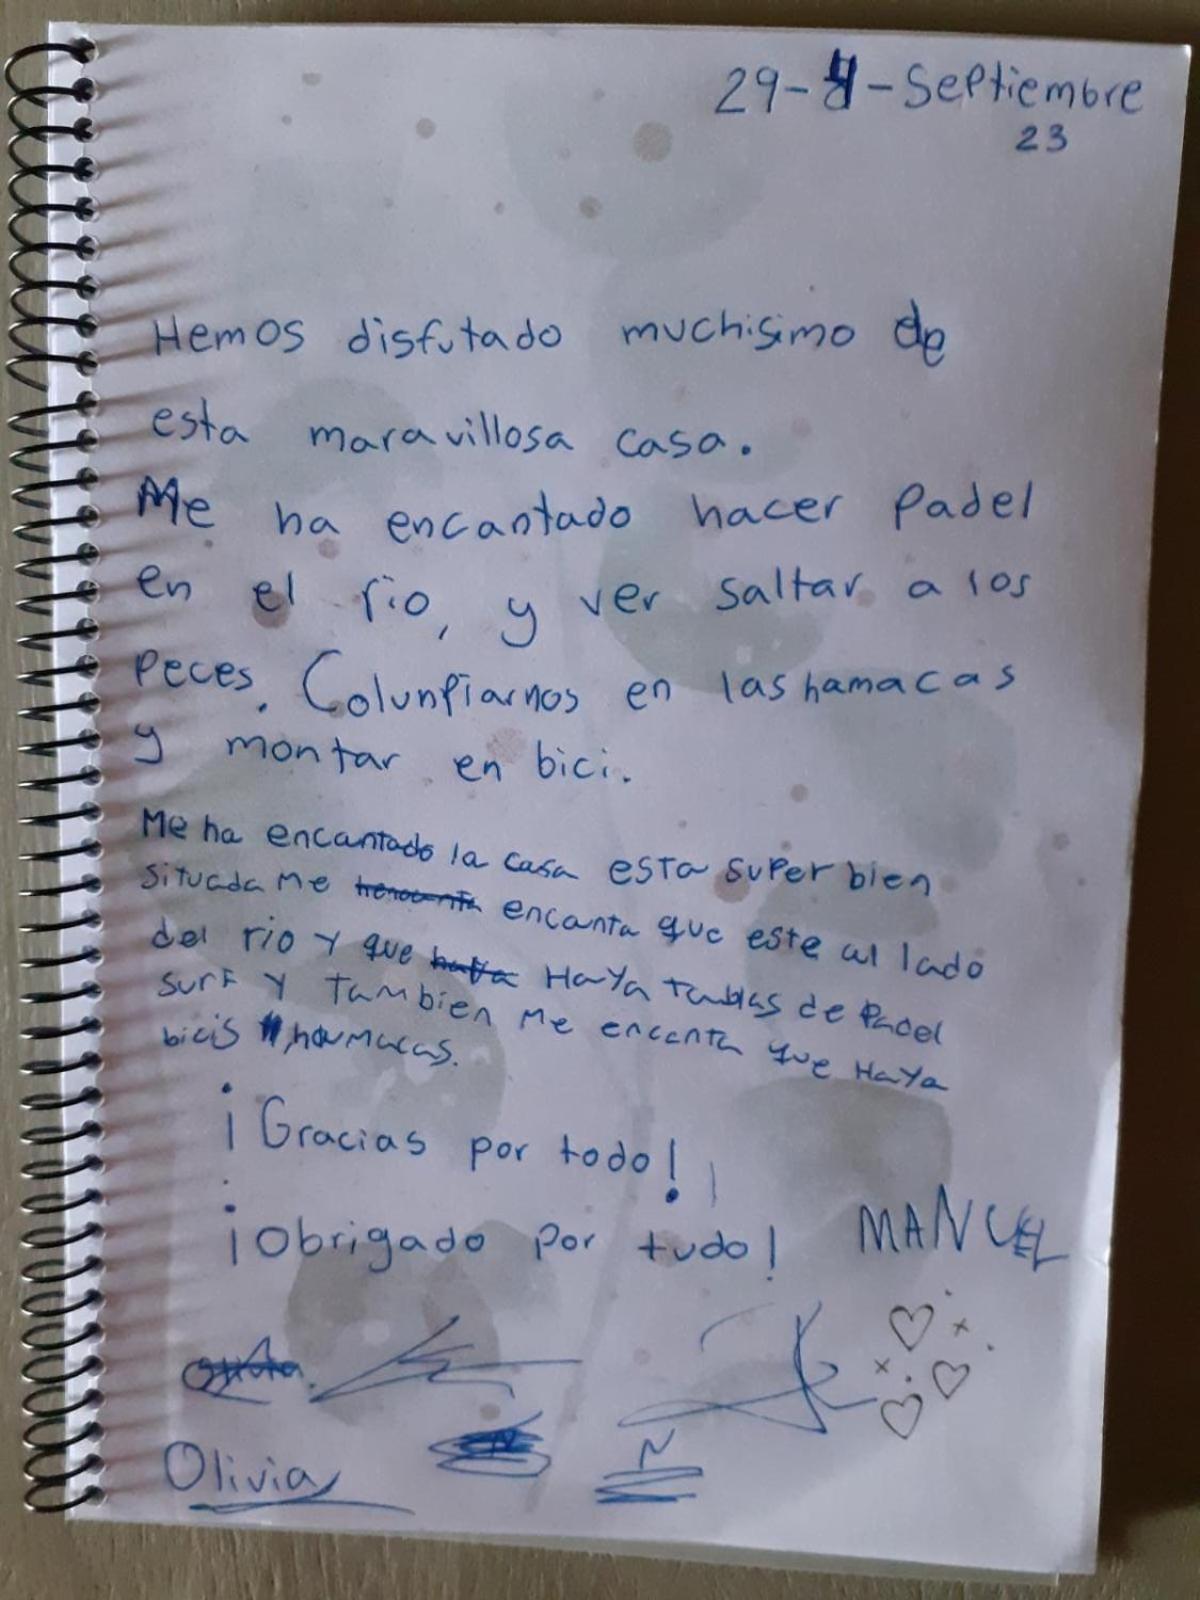 29-4-Septiembre
23
Hemos disfutado muchisimo de
esta maravillosa casa.
Me ha encantado hacer Padel
en el rio, y ver saltar a los
Peces. Colunpiarnos en las hamacas
y montar en bici.
Me ha encantado la casa esta super bien
situada Me encanta que este al lado
del rio y que HaYa tablas de Padel
surf y tambien Me encanta que HaYa
bicis hamacas.
¡Gracias por todo!
¡Obrigado por tudo!
MANUEL
Olivia
N